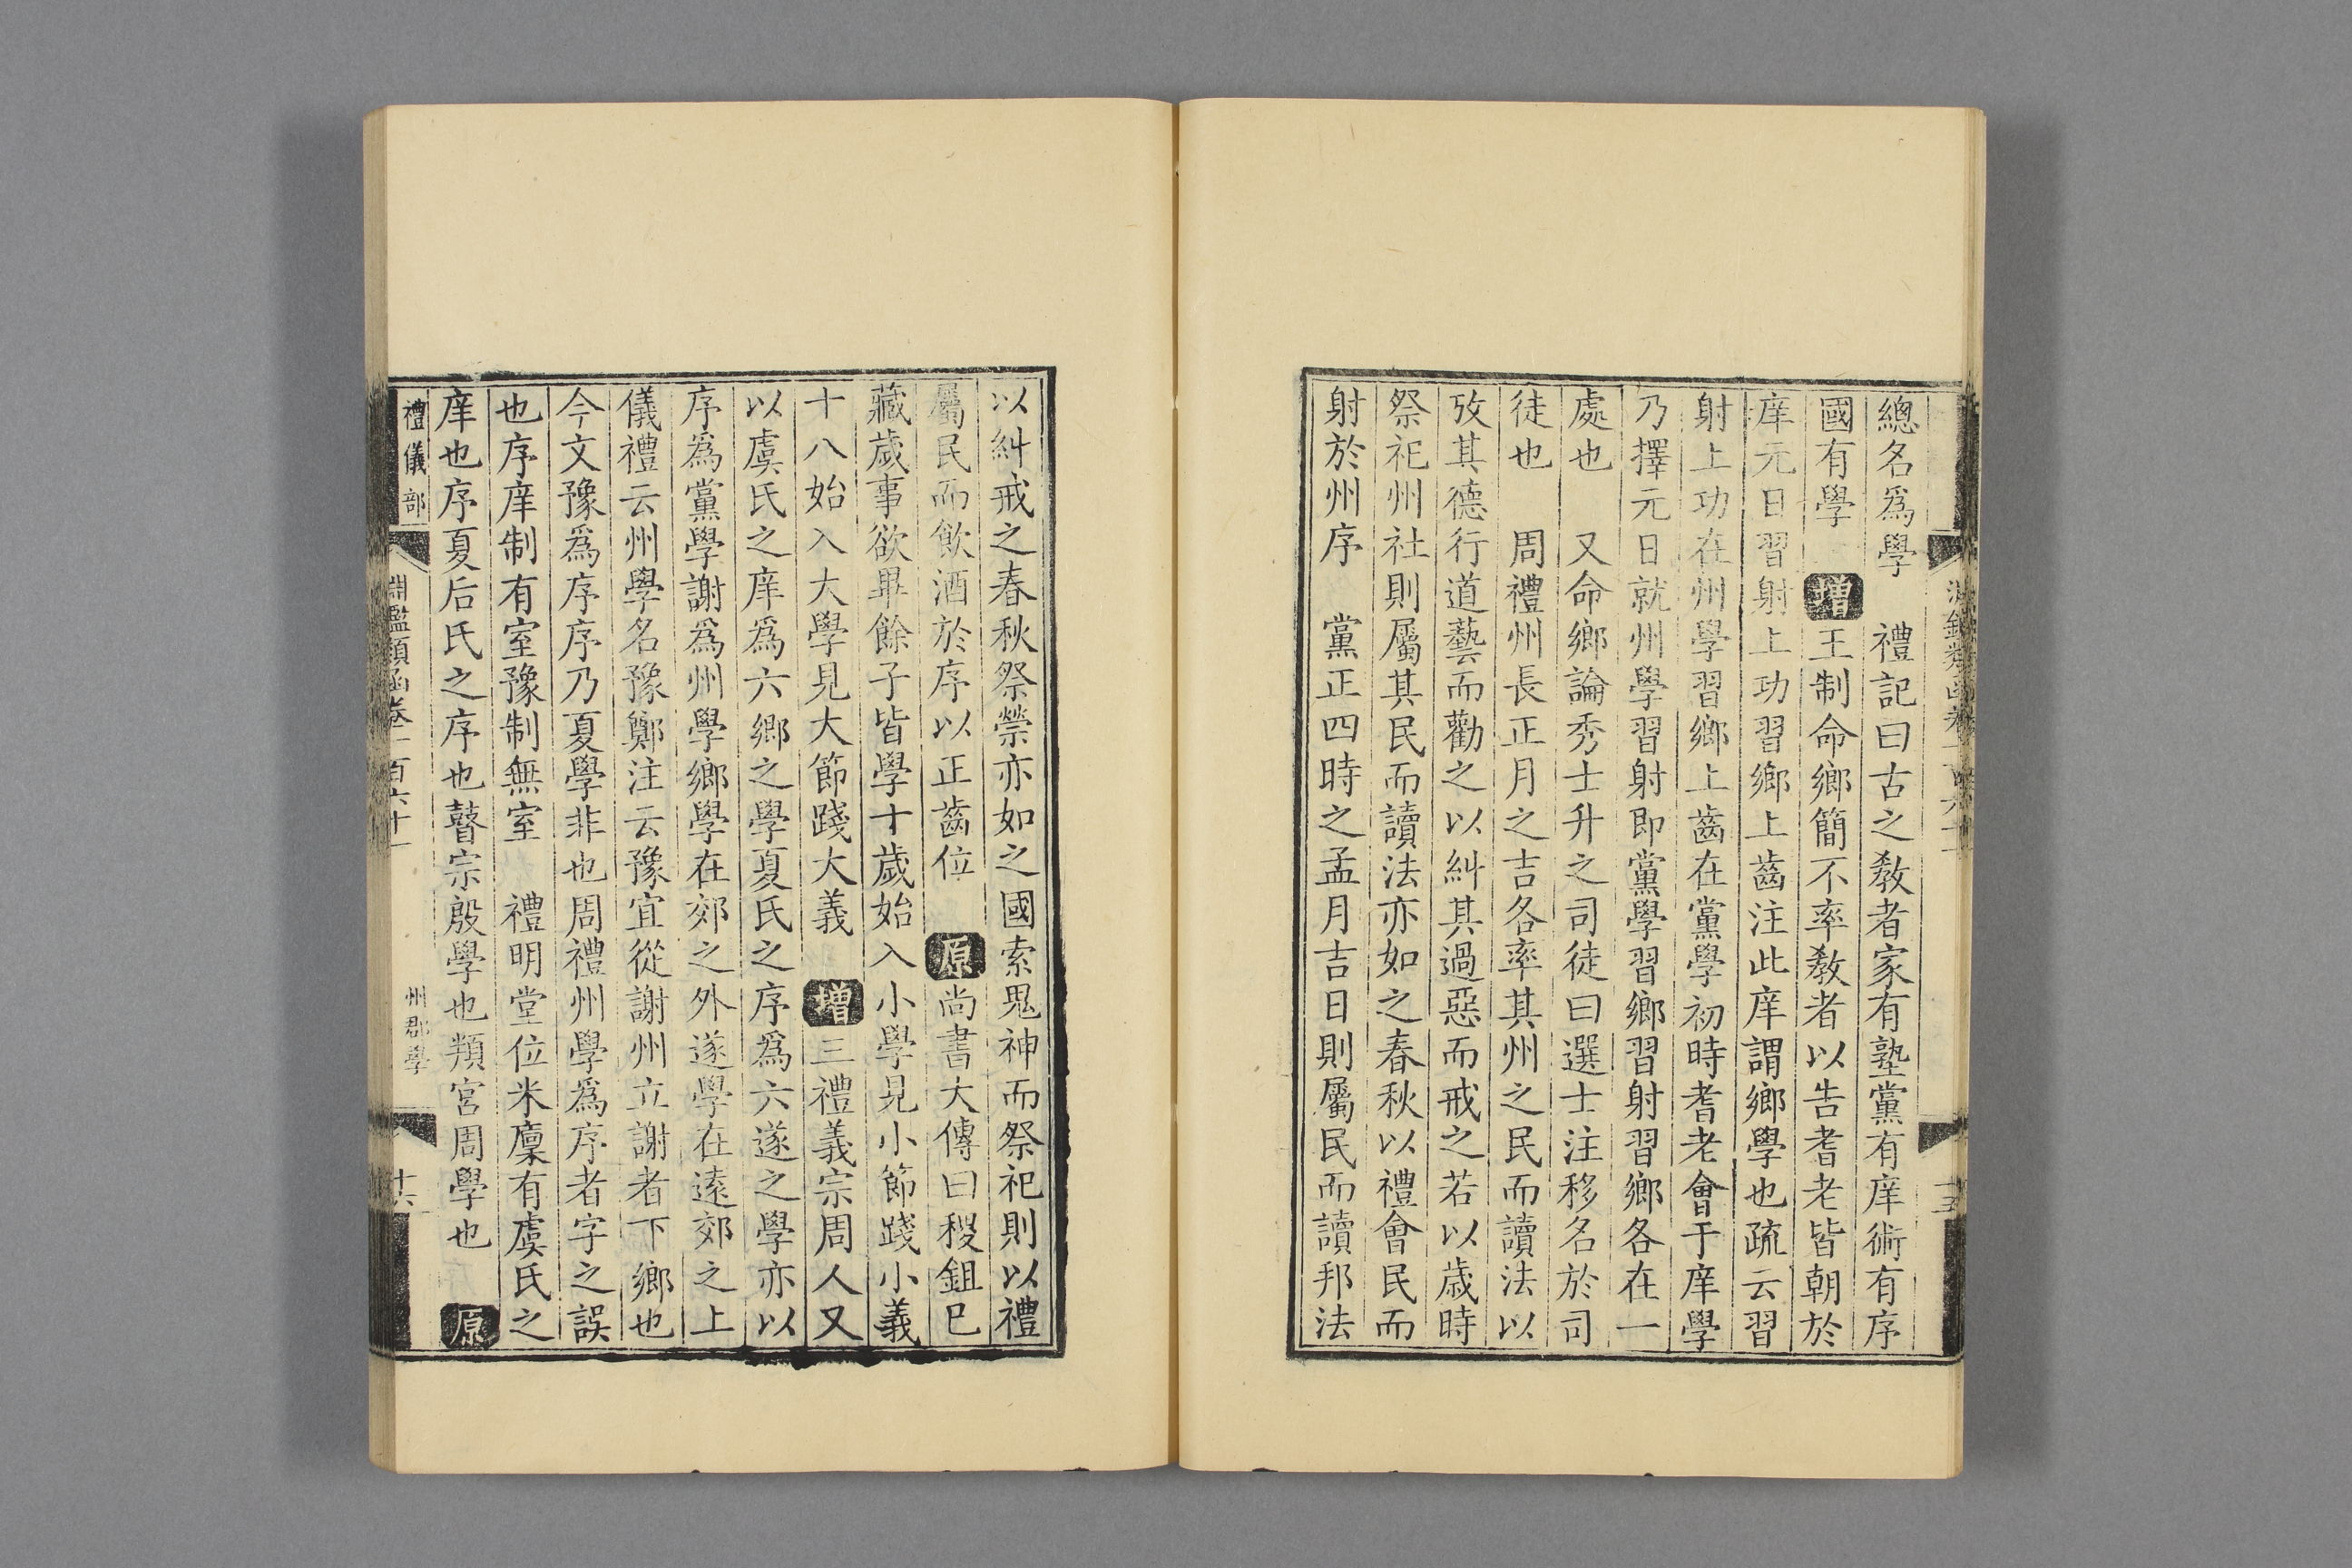 總名爲學　禮記曰古之敎者家有塾黨有庠術有序
國有學　增王制命鄉簡不率敎者以告耆老皆朝於
庠元日習射上功習鄉上齒注此庠謂鄉學也疏云習
射上功在州學習鄉上齒在黨學初時耆老會于庠學
乃擇元日就州學習射即黨學習鄉習射習鄉各在一
處也　又命鄉論秀士升之司徒曰選士注移名於司
徒也　周禮州長正月之吉各率其州之民而讀法以
攷其德行道藝而勸之以糾其過惡而戒之若以歲時
祭祀州社則屬其民而讀法亦如之春秋以禮會民而
射於州序　黨正四時之孟月吉日則屬民而讀邦法
以糾戒之春秋祭禜亦如之國索鬼神而祭祀則以禮
屬民而飲酒於序以正齒位　原尚書大傳曰稷鉏已
藏歲事欲畢餘子皆學十歲始入小學見小節踐小義
十八始入大學見大節踐大義　增三禮義宗周人又
以虞氏之庠爲六鄉之學夏氏之序爲六遂之學亦以
序爲黨學謝爲州學鄉學在郊之外遂學在遠郊之上
儀禮云州學名豫鄭注云豫宜從謝州立謝者下鄉也
今文豫爲序序乃夏學非也周禮州學爲序者字之誤
也序庠制有室豫制無室　禮明堂位米廩有虞氏之
庠也序夏后氏之序也瞽宗殷學也頖宮周學也　原
禮儀部　淵鑑類函卷一百六十一　州郡學　十六